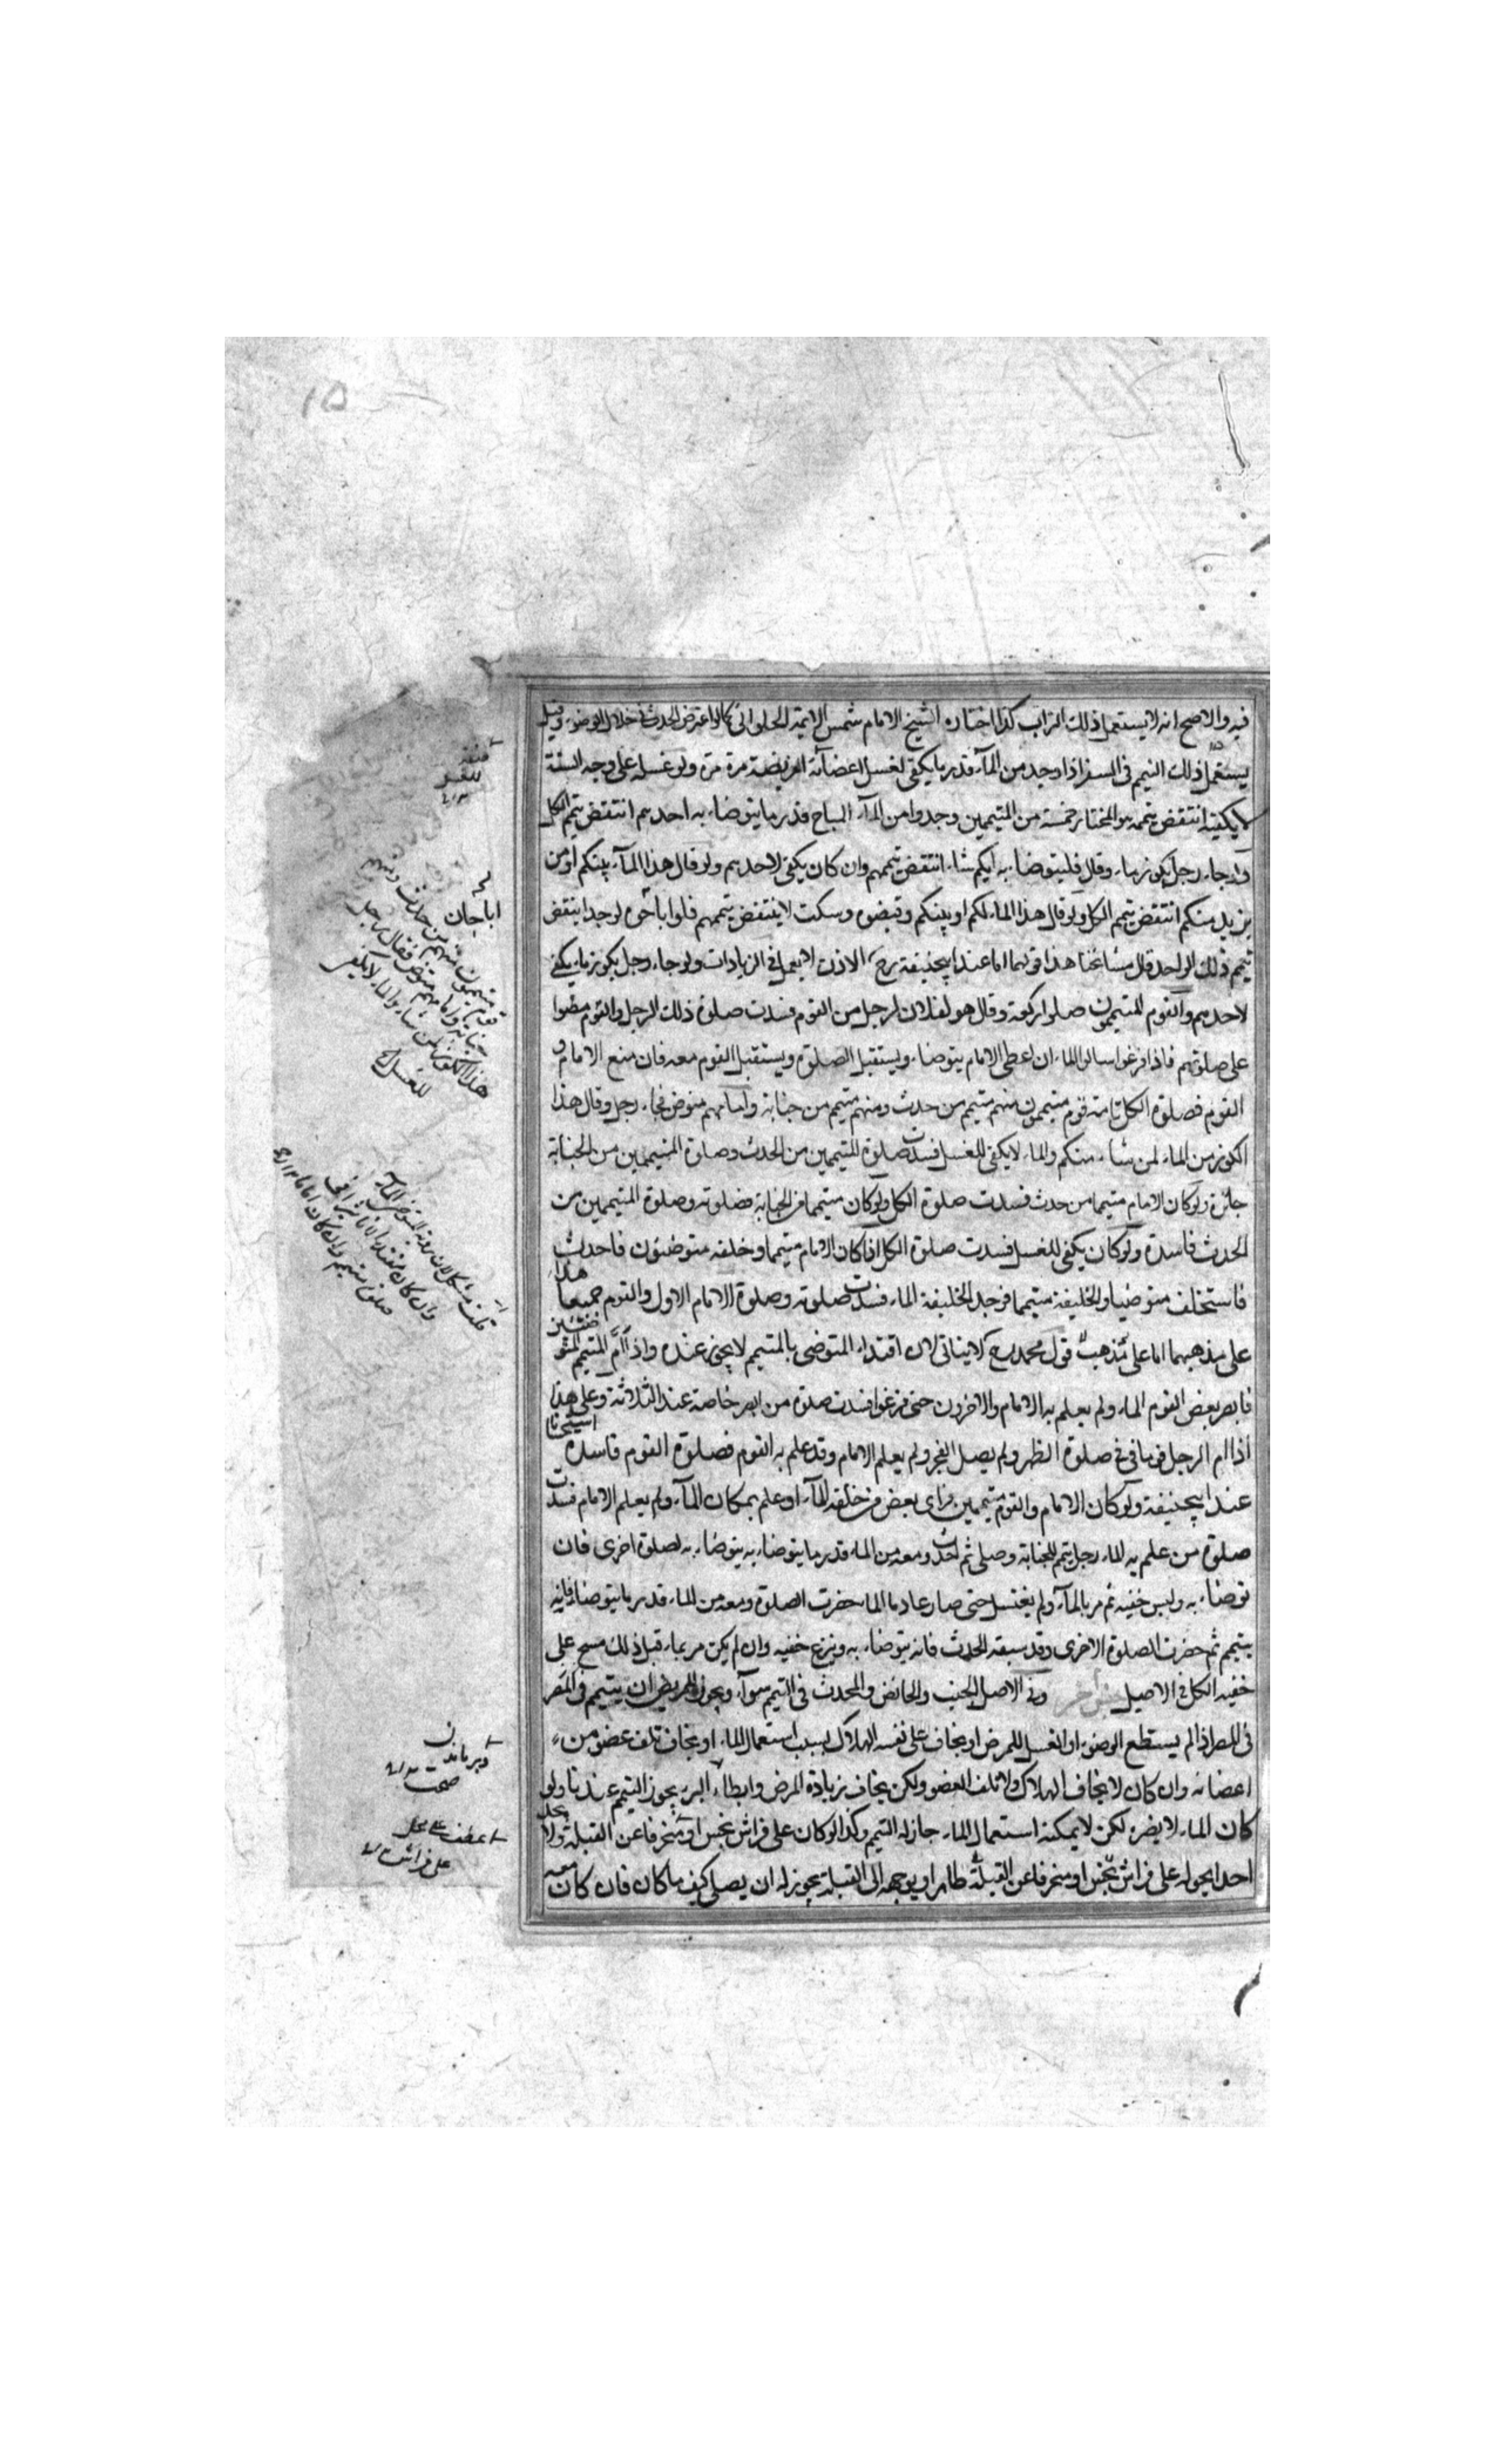 ١٥
فيه والاصح انه لا يستعمل ذلك التراب كذا اختاره الشيخ الامام شمس الايمة الحلوانى كما لو اعترض الحدث فى خلال الوضوء وقيل
يستعمل ذلك التيمم فى السفر اذا وجد من المآء قدر ما يكفى لغسل اعضآئه الفريضة مرة مرة ولو غسله على وجه السنة
لا يكفيه انتقض تيممه هو المختار خمسة من المتيممين وجدوا من المآء المباح قدر ما يتوضاء به احدهم انتقض تيمم الكل
ولو جاء رجل بكوز ماء وقال فليتوضاء به ايكم شاء انتقض تيممهم وان كان يكفى لاحدهم ولو قال هذا المآء بينكم او من
يريد منكم انتقض تيمم الكل ولو قال هذا الماء لكم او بينكم وقبضوه وسكت لا ينتقض تيممهم فلو اباحوه لواحد ينتقض
تيمم ذلك الواحد قال مشائخنا هذا قولهما اما عند ابيحنيفة رح الاذن لا يعمل فى الزيادات ولو جاء رجل بكوز ماء يكفى
لاحدهم والقوم المتيممون صلوا ركعة وقال هو لفلان لرجل من القوم فسدت صلوة ذلك الرجل والقوم مضوا
على صلوتهم فاذا فرغوا سالوا الماء ان اعطى الامام يتوضاء ويستقبل الصلوة ويستقبل القوم معه فان منع الامام و
القوم فصلوة الكل تامة قوم متيممون منهم متيمم من حدث ومنهم متيمم من جنابة وامامهم متوض فجاء رجل وقال هذا
الكوز من الماء لمن شاء منكم والماء لا يكفى للغسل فسدت صلوة المتيممين من الحدث وصلوة المتيممين من الجنابة
جائزة ولو كان الامام متيمما من حدث فسدت صلوة الكل ولو كان متيمما من الجنابة فصلوته وصلوة المتيممين من
الحدث فاسدة ولو كان يكفى للغسل فسدت صلوة الكل اذا كان الامام متيمما وخلفه متوضئون فاحدث
فاستخلف متوضيا والخليفة متيمما فوجد الخليفة الماء فسدت صلوته وصلوة الامام الاول والقوم جميعا هذا
على مذهبهما اما على مذهب قول محمد رح لا يتاتى لان اقتداء المتوضى بالمتيمم لا يجوز عنده واذا ام المتيمم المتوضئين
فابصر بعض القوم الماء ولم يعلم به الامام والاخرون حتى فرغوا فسدت صلوة من ابصر خاصة عند الثلاثة وعلى هذا
اذا ام الرجل قوما فى صلوة الظهر ولم يصل الفجر ولم يعلم الامام وقد علم به القوم فصلوة القوم فاسدة
عند ابيحنيفة ولو كان الامام والقوم متيممين وراى بعض من خلفه المآء او علم بمكان المآء ولم يعلم الامام فسدت
صلوة من علم به الماء رجل تيمم للجنابة وصلى ثم احدث ومعه من الماء قدر ما يتوضاء به يتوضاء به لصلوة اخرى فان
توضاء به ولبس خفيه ثم مر بالمآء ولم يغتسل حتى صار عادما الماء حضرت الصلوة ومعه من الماء قدر ما يتوضاء فانه
يتيمم ثم حضرت الصلوة الاخرى وقد سبقه الحدث فانه يتوضاء به وينزع خفيه وان لم يكن مر بماء قبل ذلك مسح على
خفيه الكل فى الاصل وفى الاصل الجنب والحائض والمحدث فى التيمم سوآء ويجوز للمريض ان يتيمم فى المصر
فى المصر اذا لم يستطع الوضوء او الغسل للمرض او يخاف على نفسه الهلاك بسبب استعمال الماء او يخاف تلف عضو من
اعضائه وان كان لا يخاف الهلاك ولا تلف العضو ولكن يخاف زيادة المرض وابطاء البرء يجوز التيمم عندنا ولو
كان الماء لا يضره لكن لا يمكنه استعمال الماء جاز له التيمم وكذا لو كان على فراش نجس او منحرفا عن القبلة ولا يجد
احدا يحوله على فراش نجس او منحرفا عن القبلة طاهر او يوجهه الى القبلة يجوز له ان يصلى كيف ما كان فان كان معه
اباحان
قوم متيممون منهم من حدث ومنهم
جنابة وامامهم متوض فقال رجل
هذا الكوز لمن شاء والماء لا يكفى
للغسل
على فراش